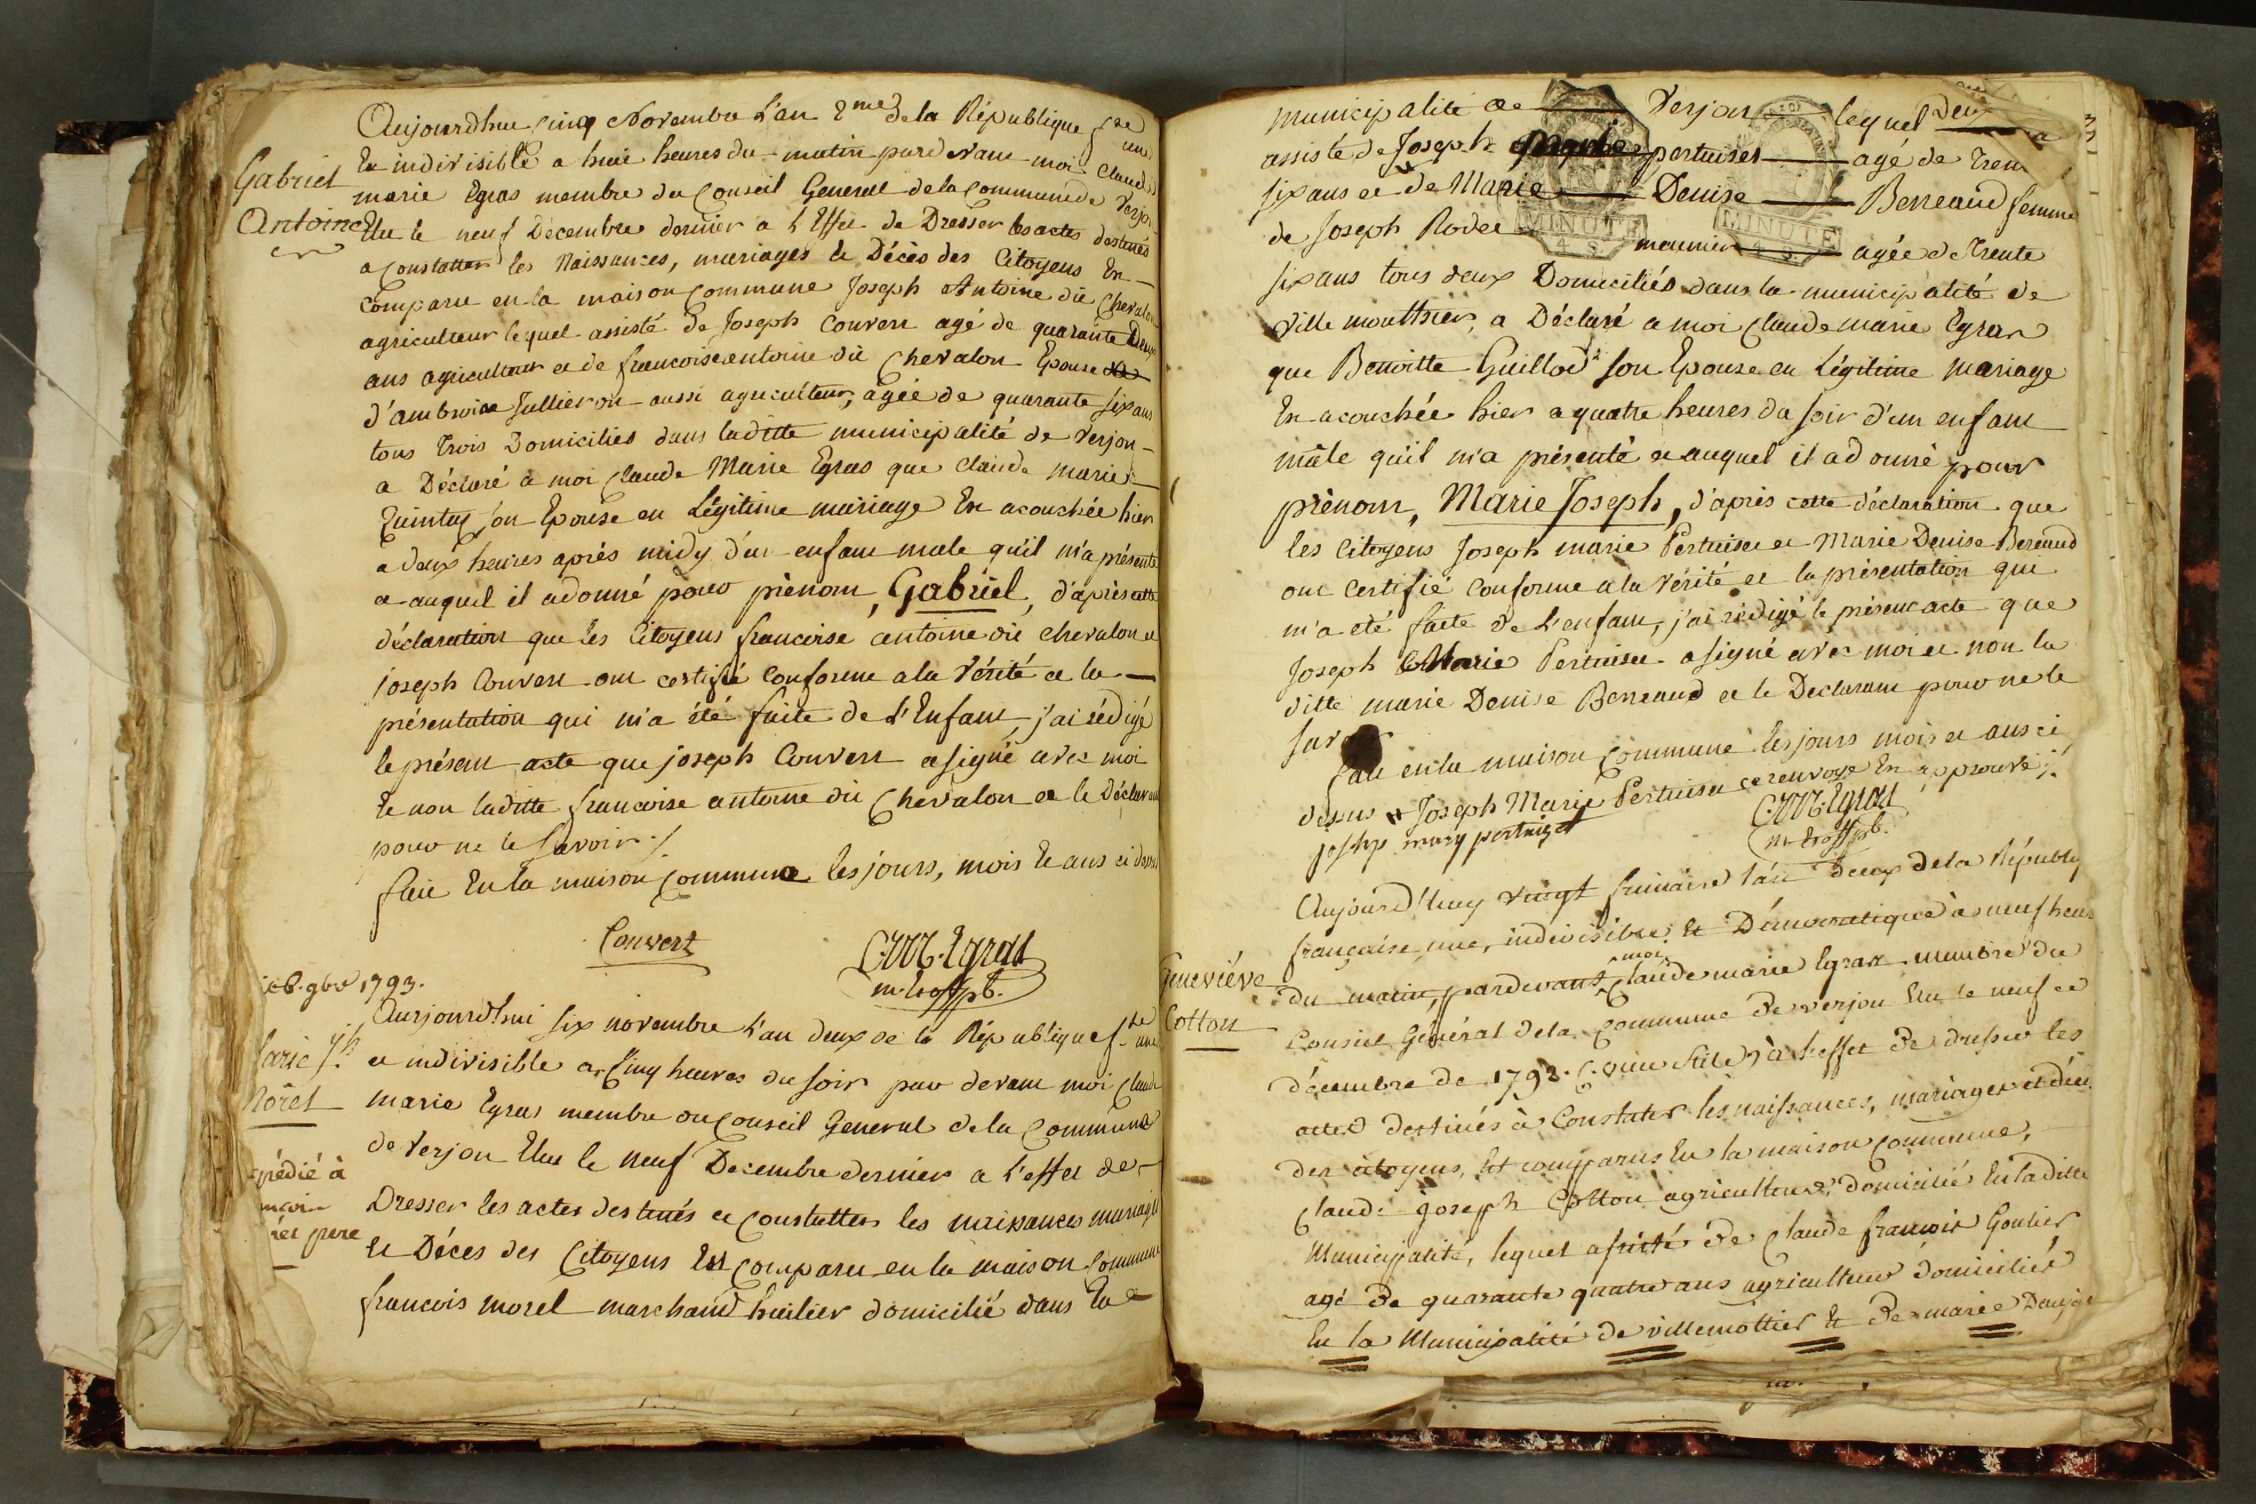 Gabriel
Antoine
Aujourdhui Cinq Novembre L'an 2me de la République fse une
Et indivisible a huit heures du matin pardevant moi Claude
marie Egras membre du Conseil General de la Commune de Verjon
Elu le neuf Decembre dernier a L'Effet de Dresser les actes destinés
a Constatter les Naissances, mariages et Décès des Citoyens Est
Comparu en la maison Commune Joseph Antoine dit Chevalon
agriculteur lequel assisté de Joseph Convert agé de quarante Deux
ans agriculteur et de francoise antoine dit Chevalon Epouse
d'ambroise Jullieron aussi agriculteur, agée de quarante six ans
tous trois Domiciliés dans ladite municipalité de Verjon
a Déclaré à moi Claude Marie Egras que Claude marie
son Epouse en Légitime mariage Est acouchée hier
a deux heures après midy d'un enfant male qu'il m'a présenté
et auquel il a donné pour prènom, Gabriel, d'après cette
déclaration que les Citoyens francoise antoine dit chevalon et
joseph Convert ont certifié Conforme a la Vérité et la
présentation qui m'a été faite de L'Enfant, j'ai rédigé
le présent acte que joseph Convert a signé avec moi
Et non laditte francoise antoine dit Chevalon et le Déclarant
pour ne le Savoir /.
fait En la maison Commune les jours, mois Et ans ci dessus
Convert
C.M. Egras
m. Et off pb.
9bre 1793.
Marie Jh
Morel
Expédié à
père
Aurjourdhui six novembre L'an deux de la République fse une
et indivisible a Cinq heures du soir par devant moi Claude
marie Egras membre du Conseil General de la Commune
de Verjon Elu le neuf Decembre dernier a L'effet de
Dresser les actes destinés et Constatter les naissances mariages
Et Déces des Citoyens Est Comparu en la maison Commune
francois morel marchand huilier domicilié dans la
municipalité de Verjon lequel
assisté de Joseph pertuiset agé de trente
six ans et de Marie Denise Berreaud femme
de Joseph Rodet meunier agée de Trente
six ans tous deux Domiciliés dans la municipalité de
Ville mouthier, a Déclaré a moi Claude marie Egras
que Benoitte Guillod son Epouse en Légitime mariage
Est acouchée hier a quatre heures du soir d'un enfant
mâle qu'il m'a présenté et auquel il a donné pour
prènom, Marie Joseph, d'après cette déclaration que
les Citoyens Joseph marie Pertuiset et Marie Denise Bereaud
ont Certifié Conforme a la Vérité et la présentation que
m'a eté faite de L'enfant, j'ai rédigé le présent acte que
Joseph Marie Pertuiset a signé avec moi et non la
ditte marie Denise Berreaud et le Declarant pour ne le
fait en la maison Commune les jours mois et ans ci
dessus # Joseph Marie Pertuiset ce renvoye Est approuvé /.
joshp mary pertuizet
C.M. Egras
m Et off pb.
Geneviéve
Cotton
Aujourd'huy vingt frimaire l'an deux de la Républ
française une, indivisible Et Démocratique à neuf heures
du matin, pardevant moi Claude marie Egras membre du
Conseil Général de la Commune de verjon Elu le neuf
décembre de 1792. (vieux stile) à l'effet de dresser les
actes destinés à Constater les naissances, mariages et décès
des citoyens, Est comparus En la maison commune,
Claude joseph Cotton agriculteur, Domicilié En ladite
Municipalité, lequel assisté de Claude francois Goulier
agé de quarante quatre ans agriculteur domicilié
En la Municipalité de villemottier Et de marie
MINUTE
4 S.
MINUTE
4 S.